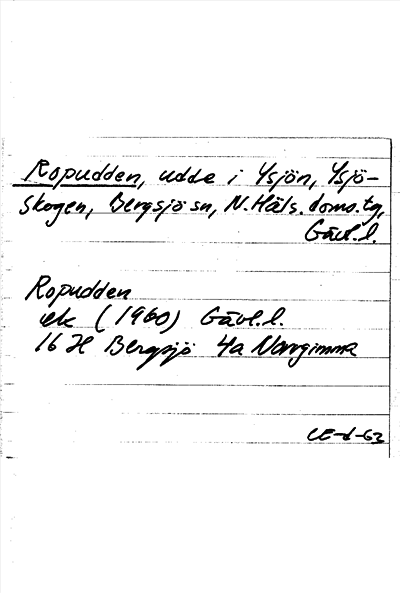 Ropudden, udde i Ysjön, Ysjö-
skogen, Bergsjö sn, N. Häls. doms.tg,
Gävl.l.
Ropudden
ek (1960) Gävl.l.
16 H Bergsjö 4a Norrgimma
CE-d-63